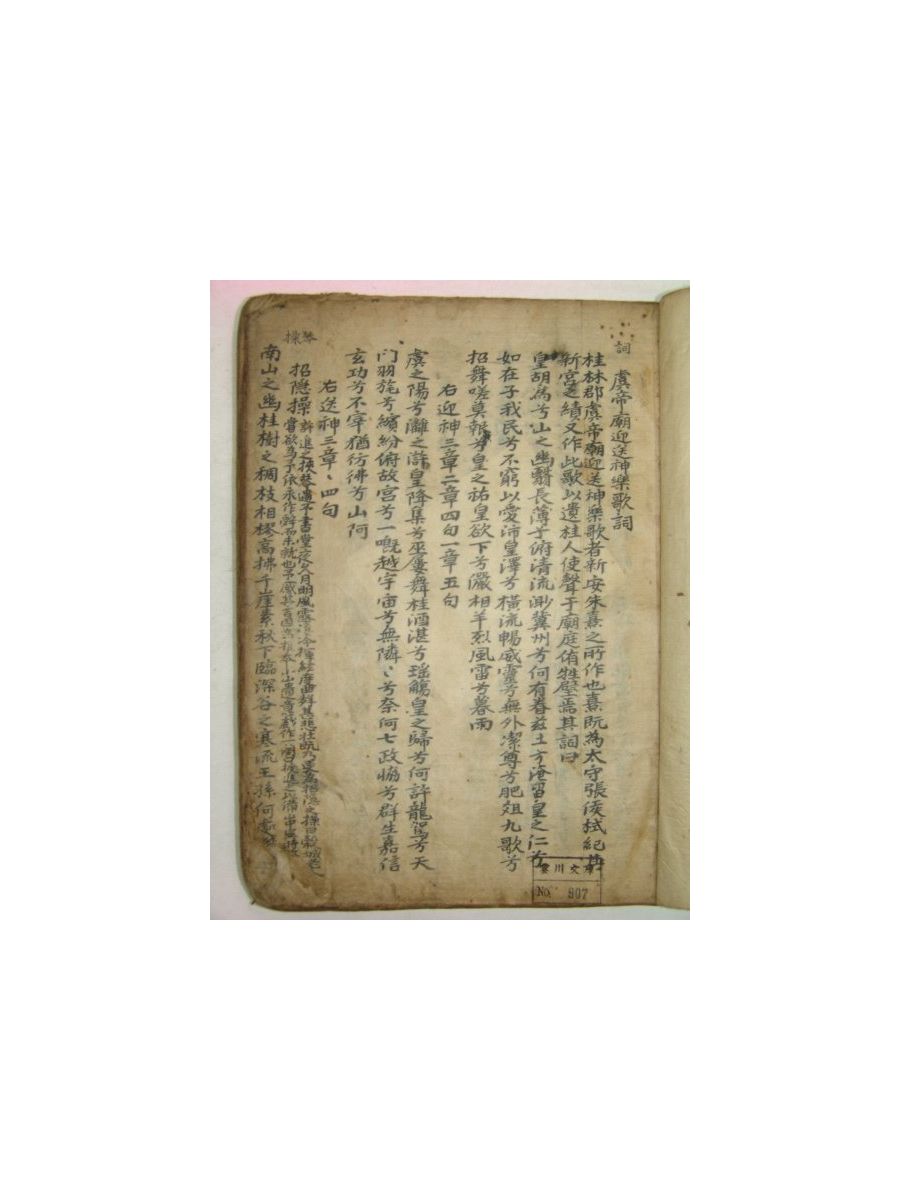 詞
虞帝廟迎送神樂歌詞
桂林郡虞帝廟迎送神樂歌者新安朱熹之所作也熹既為太守張侯栻紀其
新宮之績又作此歌以遺桂人使聲于廟庭侑牲璧焉其詞曰
皇胡為兮山之幽翳長薄兮俯清流渺冀州兮何有眷茲土兮淹留皇之仁兮
如在子我民兮不窮以愛沛皇澤兮橫流暢威靈兮無外潔尊兮肥俎九歌兮
招舞嗟莫報兮皇之祐皇欲下兮儼相羊烈風雷兮暮雨
右迎神三章二章四句一章五句
虞之陽兮灕之滸皇降集兮巫屢舞桂酒湛兮瑤觴皇之歸兮何許龍駕兮天
门羽旄兮繽紛俯故宮兮一嘅越宇宙兮無隣〻兮奈何七政協兮群生嘉信
玄功兮不宰猶彷彿兮山阿
右送神三章〻四句
琴操
招隱操
南山之幽桂樹之稠枝相樛高拂千崖素秋下臨深谷之寒流王孫何
雲川文庫
No. 807